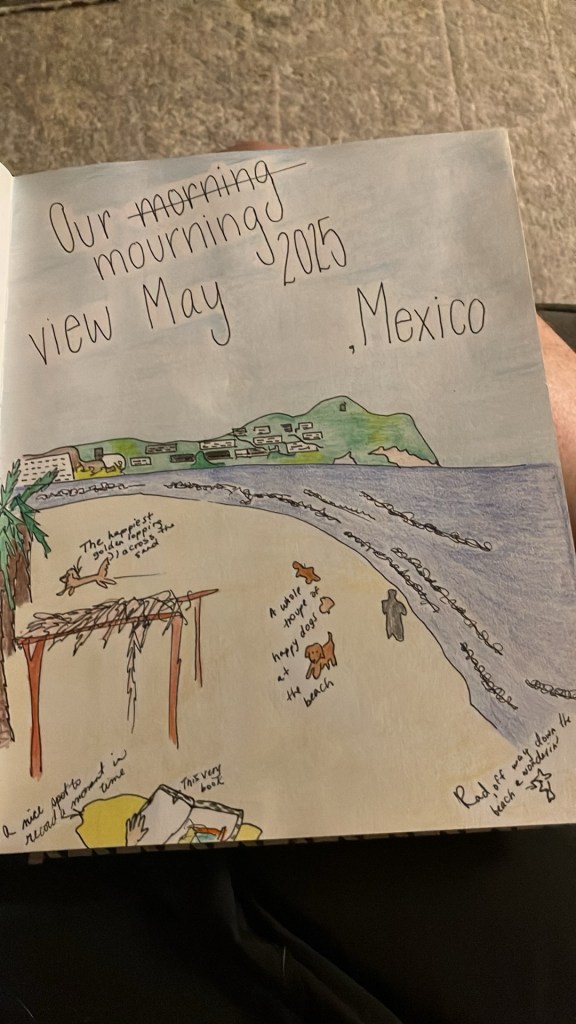 Our morning
mourning
2025
view May
, Mexico
The happiest
golden lopping
across the
sand
A whole
troupe of
happy dogs
at
the
beach
a nice spot to
record a moment in
time
This very
book
Rad, off way down the
beach a wanderin'